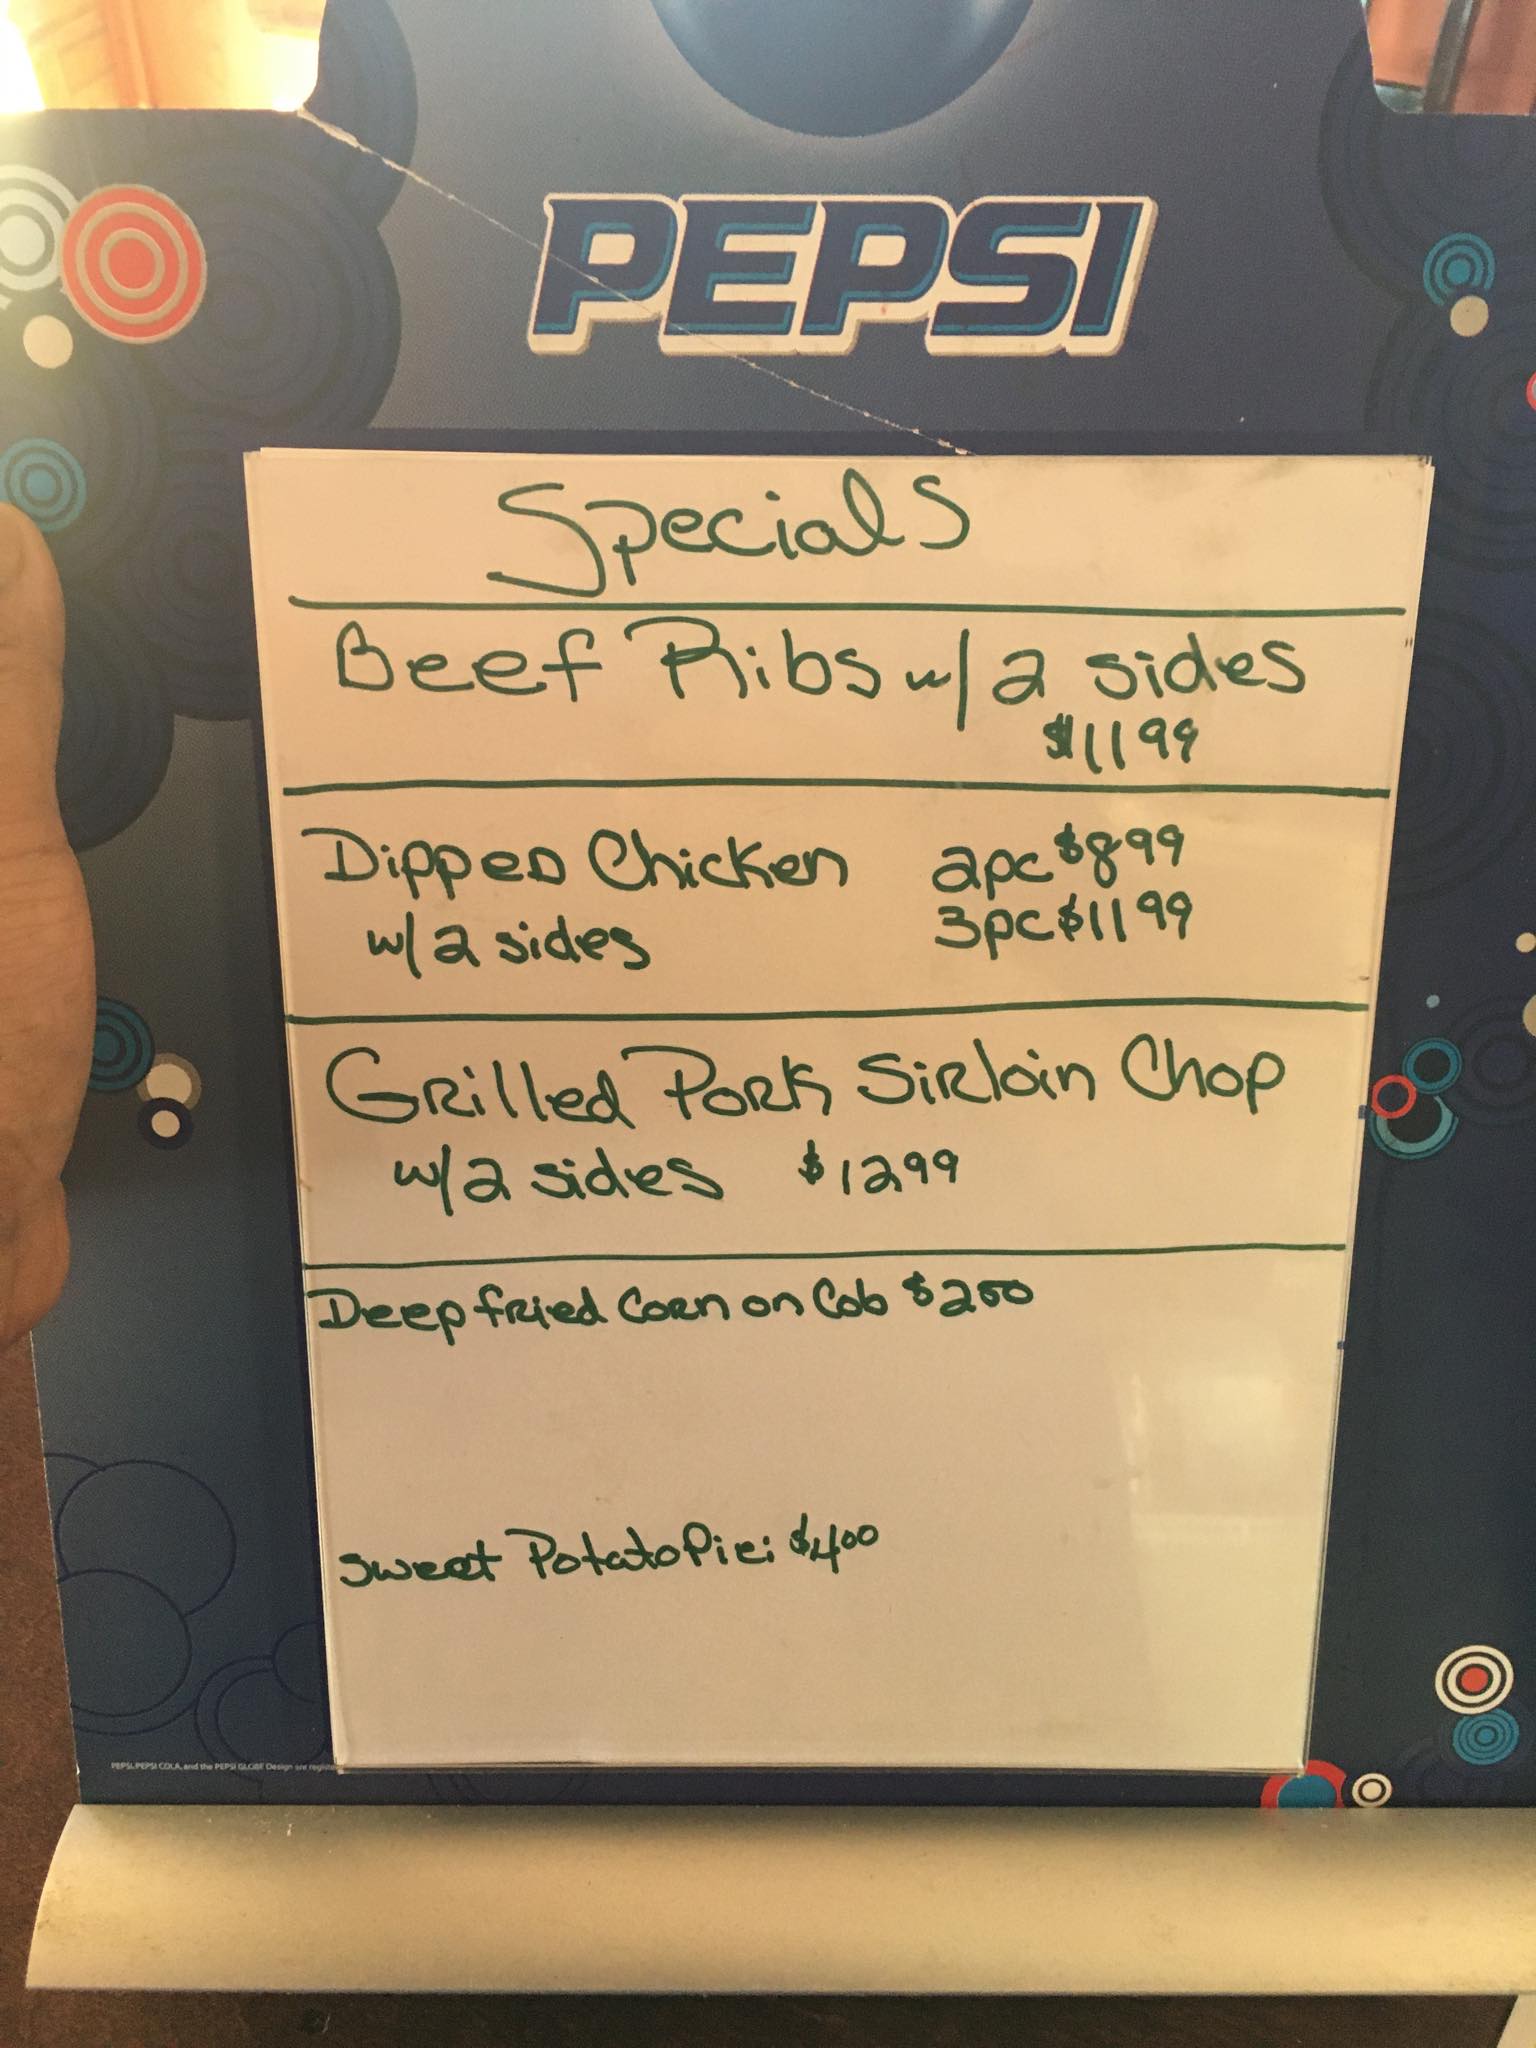 PEPSI
Specials
Beef Ribs w/ 2 sides
$11 99
Dipped Chicken 2pc $8 99
w/2 sides 3pc $11 99
Grilled Pork Sirloin Chop
w/2 sides $12 99
Deep fried Corn on Cob $2 00
Sweet Potato Pie: $4 00
PEPSI, PEPSI COLA, and the PEPSI GLOBE Design are registe